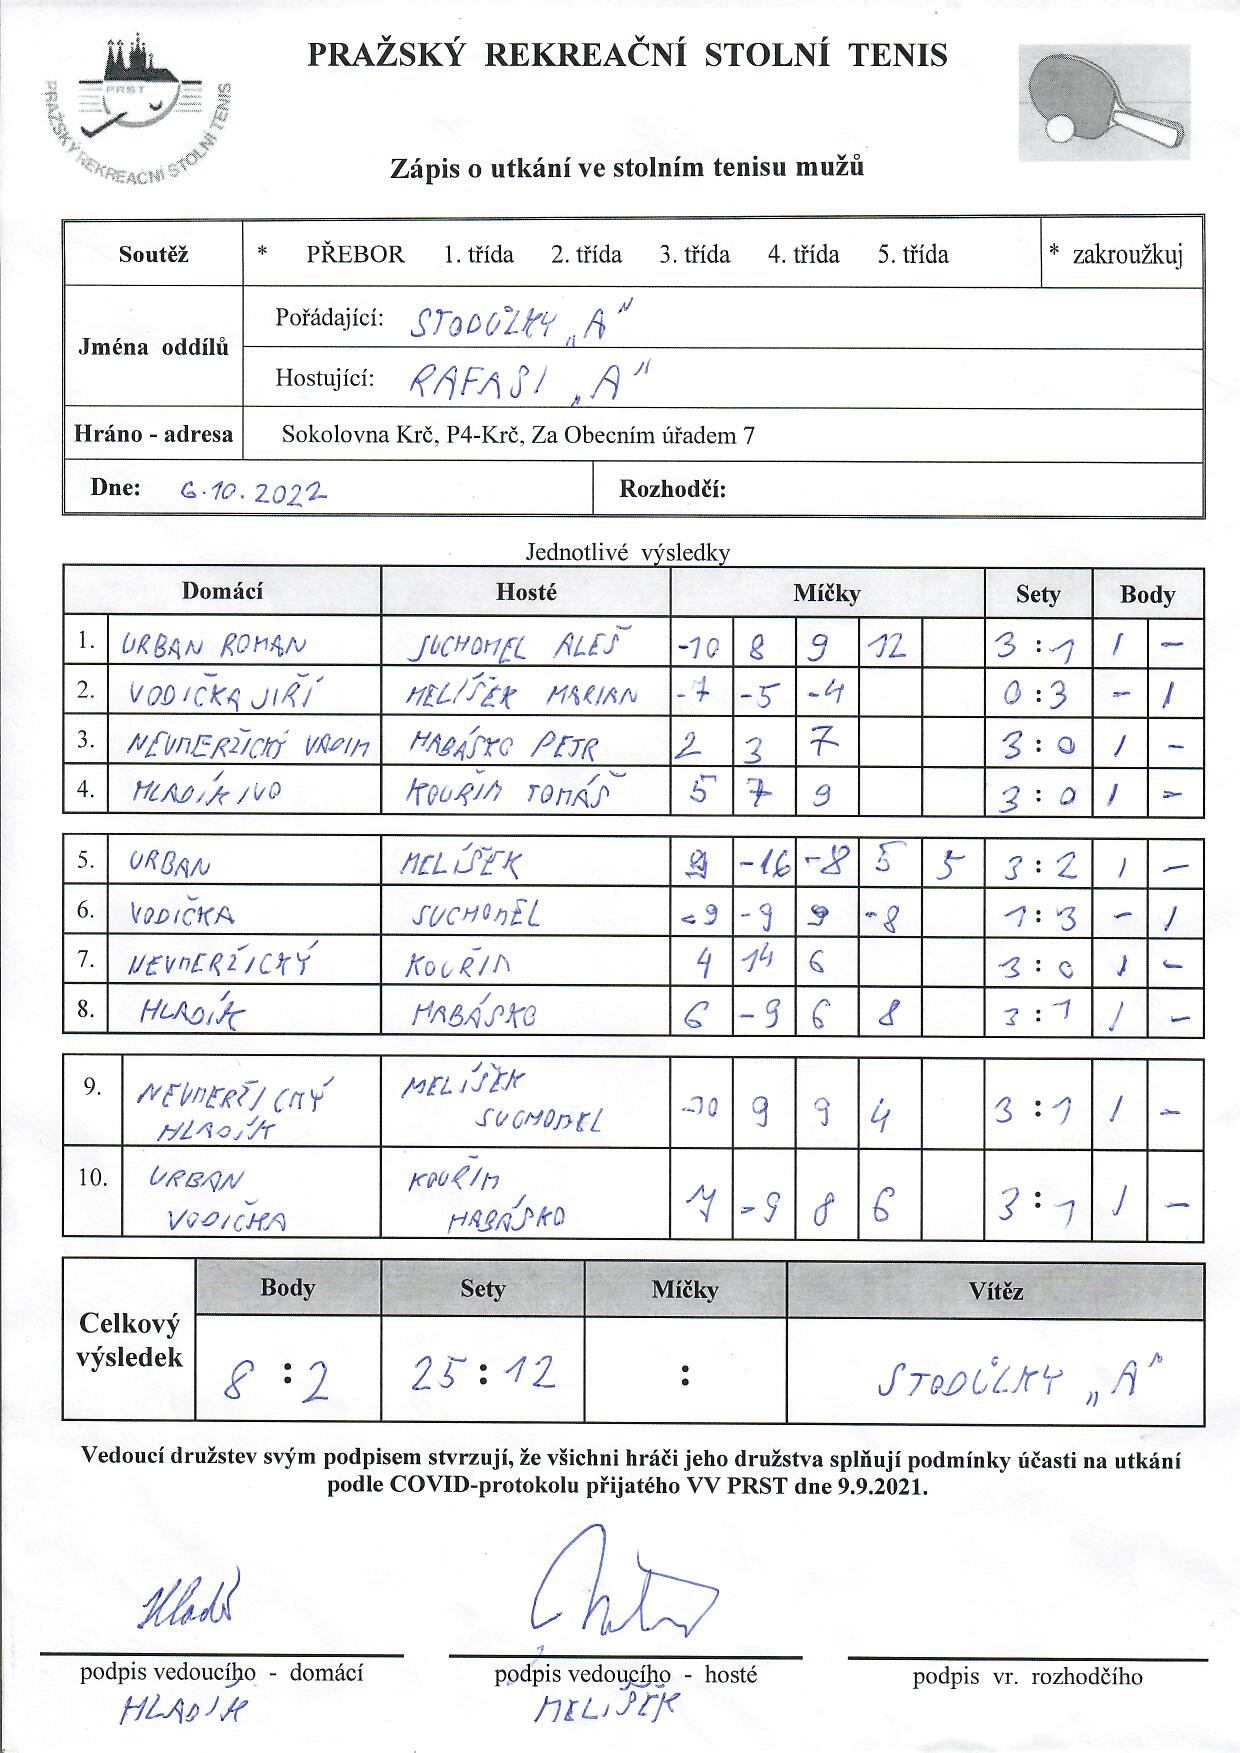 PRAŽSKÝ REKREAČNÍ STOLNÍ TENIS
PRST
PRAŽSKÝ REKREAČNÍ STOLNÍ TENIS
Zápis o utkání ve stolním tenisu mužů
Soutěž * PŘEBOR 1. třída 2. třída 3. třída 4. třída 5. třída * zakroužkuj
Jména oddílů
Pořádající: STODŮLKY „A"
Hostující: RAFASI „A"
Hráno - adresa Sokolovna Krč, P4-Krč, Za Obecním úřadem 7
Dne: 6.10.2022 Rozhodčí:
Jednotlivé výsledky
Domácí Hosté Míčky Sety Body
1. URBAN ROMAN SUCHOMEL ALEŠ -10 8 9 12 3 : 1 1 -
2. VODIČKA JIŘÍ MELÍŠEK MARIAN -7 -5 -4 0 : 3 - 1
3. NEVMERŽICKÝ VADIM HABÁSKO PETR 2 3 7 3 : 0 1 -
4. HLADÍK IVO KOUŘIM TOMÁŠ 5 7 9 3 : 0 1 -
5. URBAN MELÍŠEK 9 -16 -8 5 5 3 : 2 1 -
6. VODIČKA SUCHOMEL -9 -9 9 -8 1 : 3 - 1
7. NEVMERŽICKÝ KOUŘIM 4 14 6 3 : 0 1 -
8. HLADÍK HABÁSKO 6 -9 6 8 3 : 1 1 -
9. NEVMERŽICKÝ MELÍŠEK -10 9 9 4 3 : 1 1 -
HLADÍK SUCHOMEL
10. URBAN KOUŘIM 7 -9 8 6 3 : 1 1 -
VODIČKA HABÁSKO
Celkový výsledek
Body Sety Míčky Vítěz
8 : 2 25 : 12 : STODŮLKY „A"
Vedoucí družstev svým podpisem stvrzují, že všichni hráči jeho družstva splňují podmínky účasti na utkání
podle COVID-protokolu přijatého VV PRST dne 9.9.2021.
Hladík
podpis vedoucího - domácí podpis vedoucího - hosté podpis vr. rozhodčího
HLADÍK MELÍŠEK